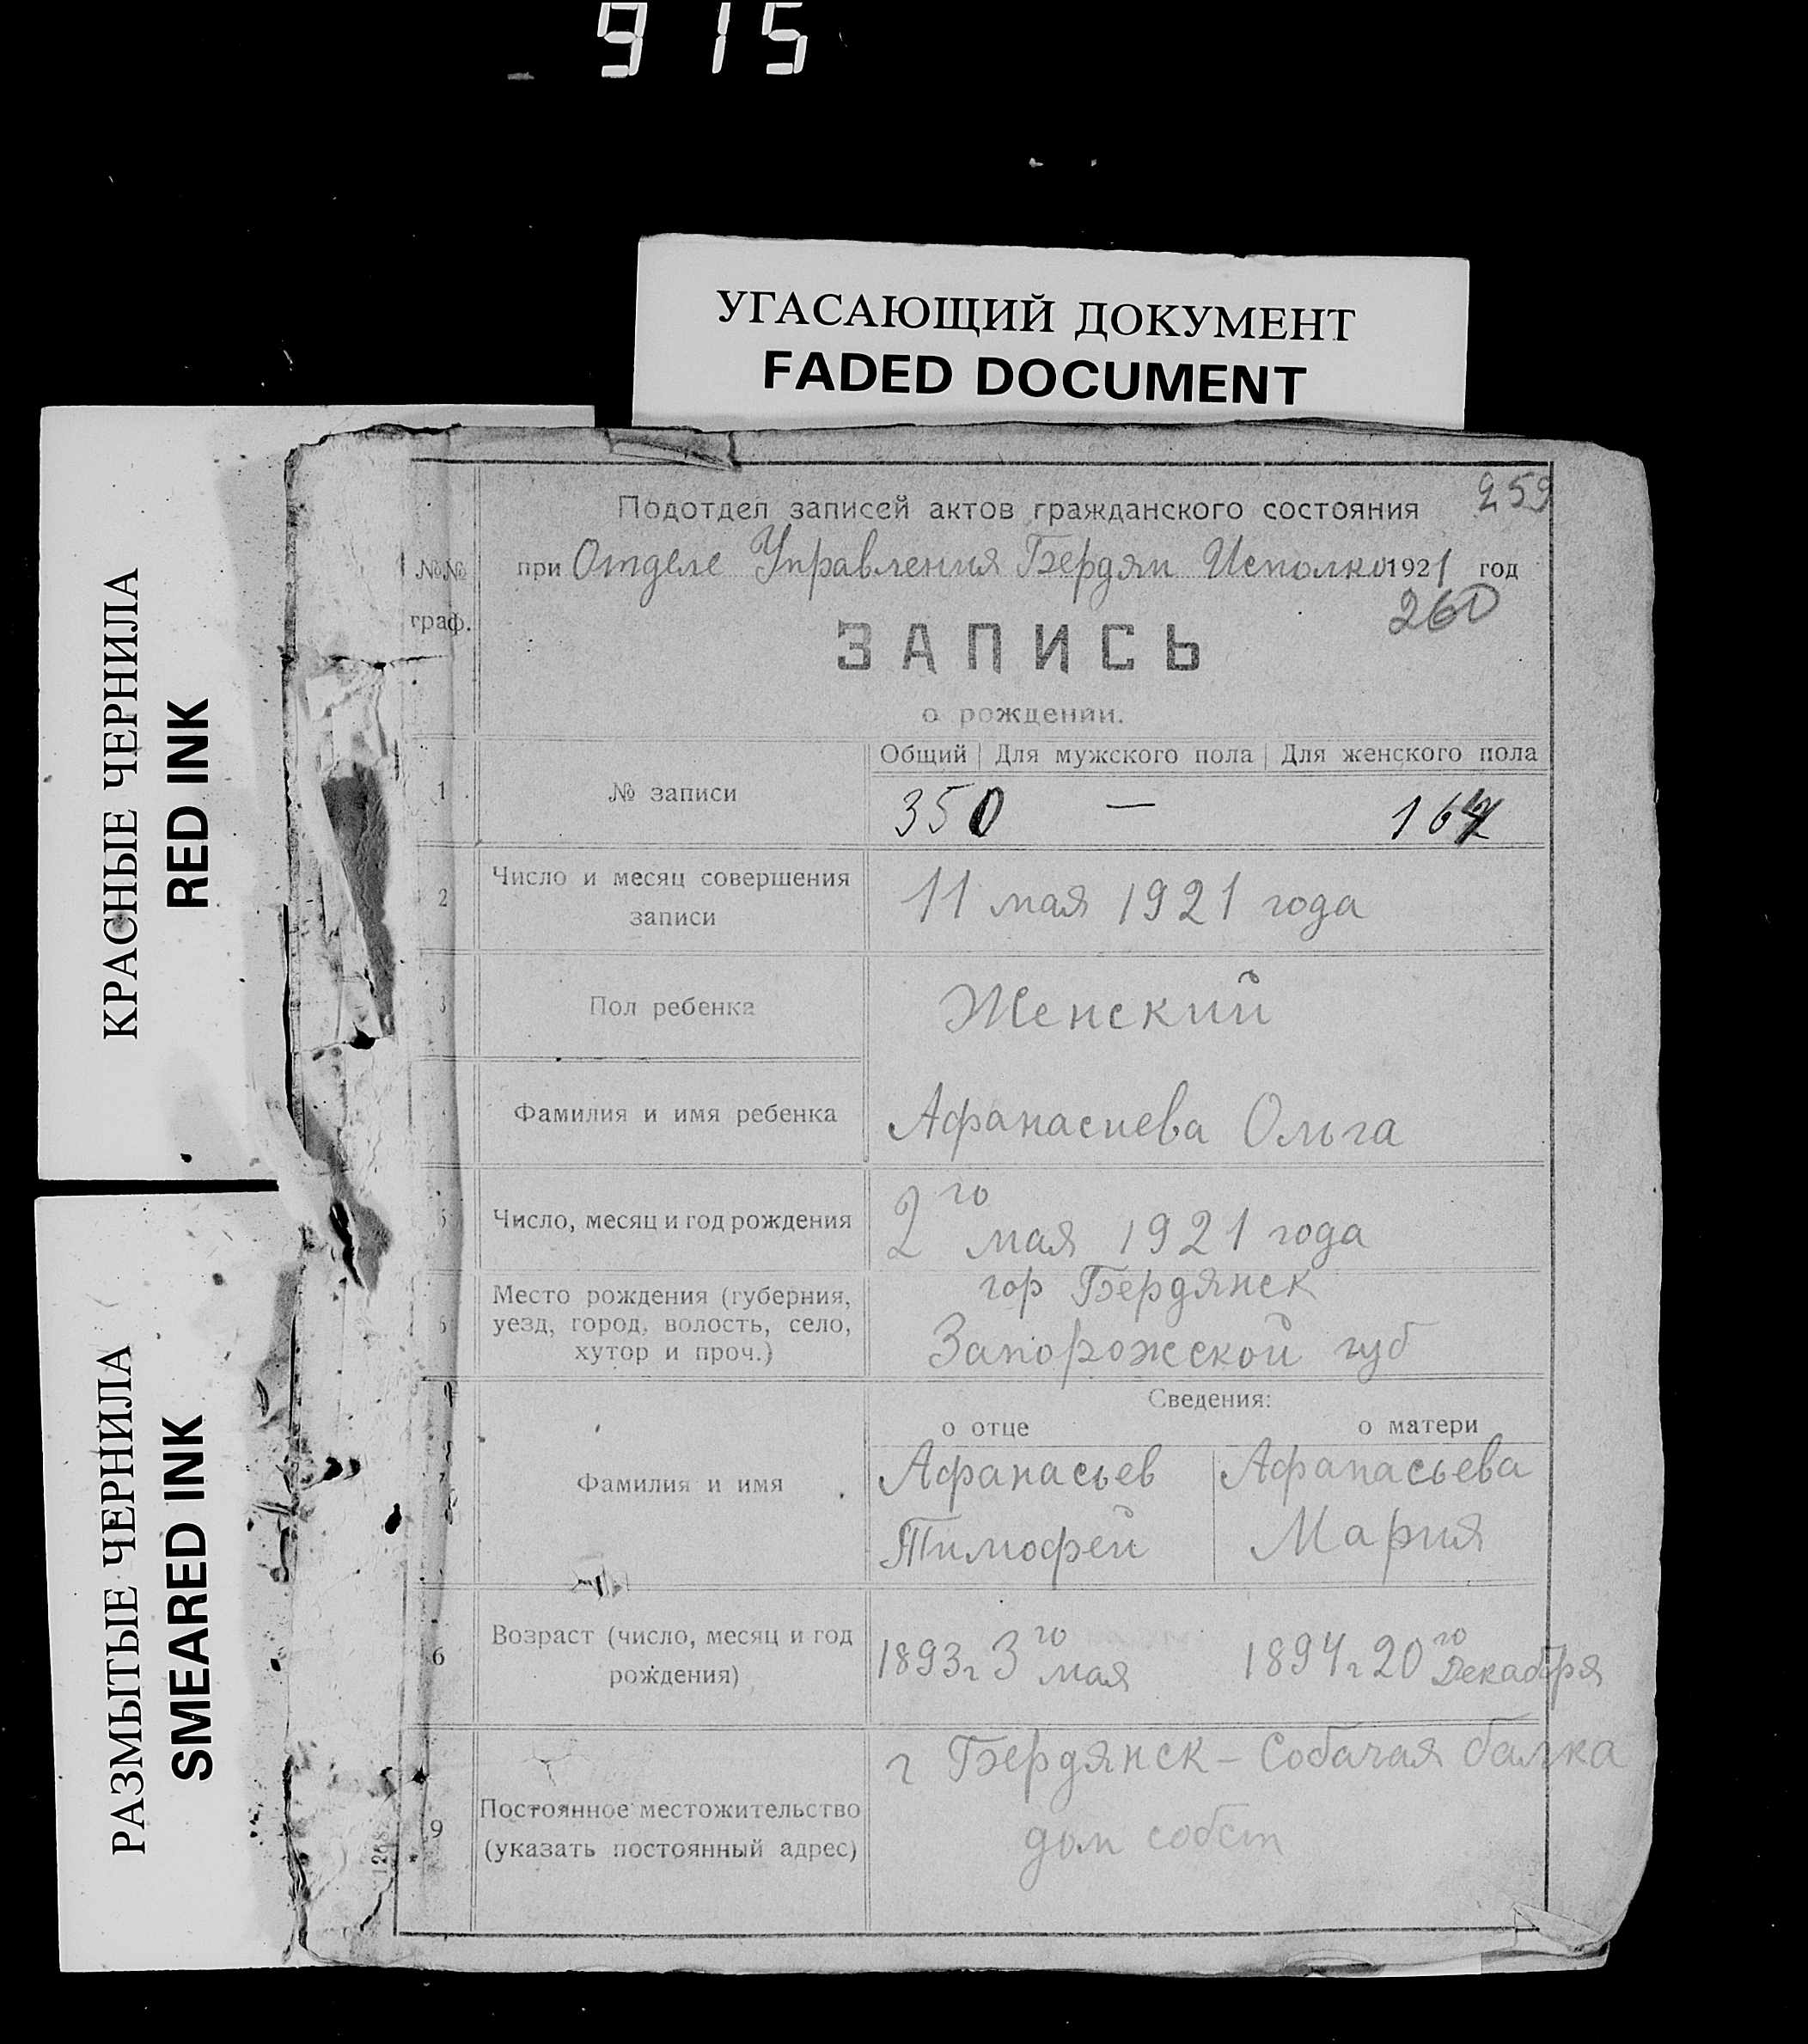 915
УГАСАЮЩИЙ ДОКУМЕНТ
FADED DOCUMENT
КРАСНЫЕ ЧЕРНИЛА
RED INK
РАЗМЫТЫЕ ЧЕРНИЛА
SMEARED INK
259
Подотдел записей актов гражданского состояния
№№ граф.
при Отделе Управления Бердян Исполко 1921 год
260
ЗАПИСЬ
о рождении.
Общий Для мужского пола Для женского пола
1 № записи 350 — 164
2 Число и месяц совершения записи
11 мая 1921 года
3 Пол ребенка Женский
Фамилия и имя ребенка Афанасиева Ольга
5 Число, месяц и год рождения 2го мая 1921 года
6 Место рождения (губерния,
уезд, город, волость, село,
хутор и проч.)
гор Бердянск
Запорожской губ
Сведения:
о отце о матери
7 Фамилия и имя
Афанасьев Афанасьева
Тимофей Мария
6 Возраст (число, месяц и год
рождения)
1893г 3го мая 1894г 20го Декабря
9 Постоянное местожительство
(указать постоянный адрес)
г Бердянск - Собачая балка
дом собст